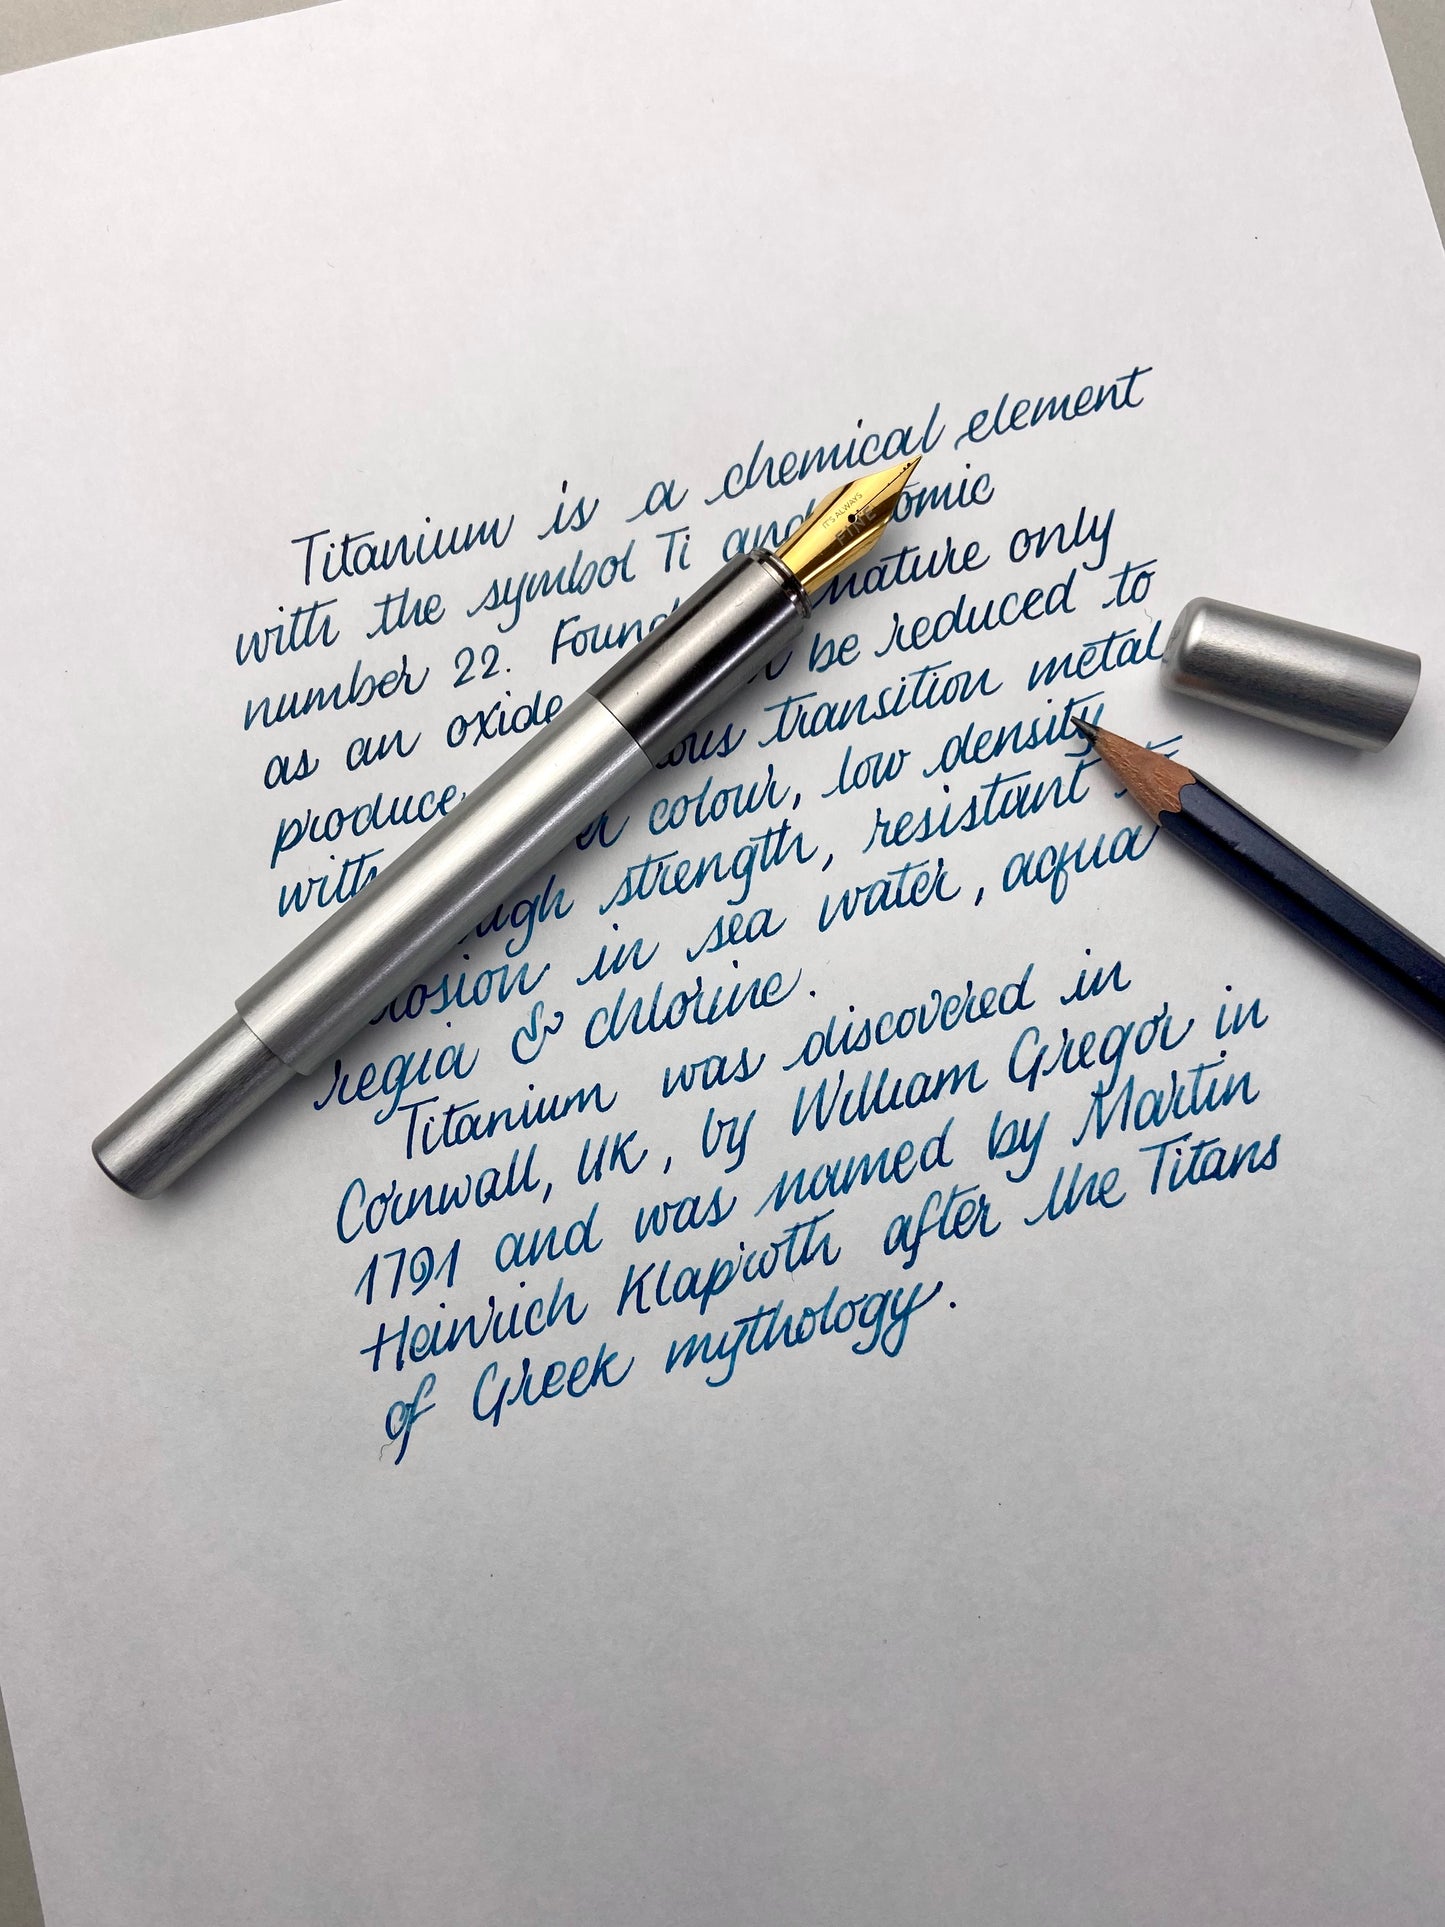 Titanium is a chemical element
with the symbol Ti and omic
number 22. Found nature only
as an oxide be reduced to
produce ous transition metal
with er colour, low density
igh strength, resistant
rosion in sea water, acqua
regia & chlorine.
Titanium was discovered in
Cornwall, UK, by William Gregor in
1791 and was named by Martin
Heinrich Klaproth after the Titans
of Greek mythology.
IT'S ALWAYS
FINE